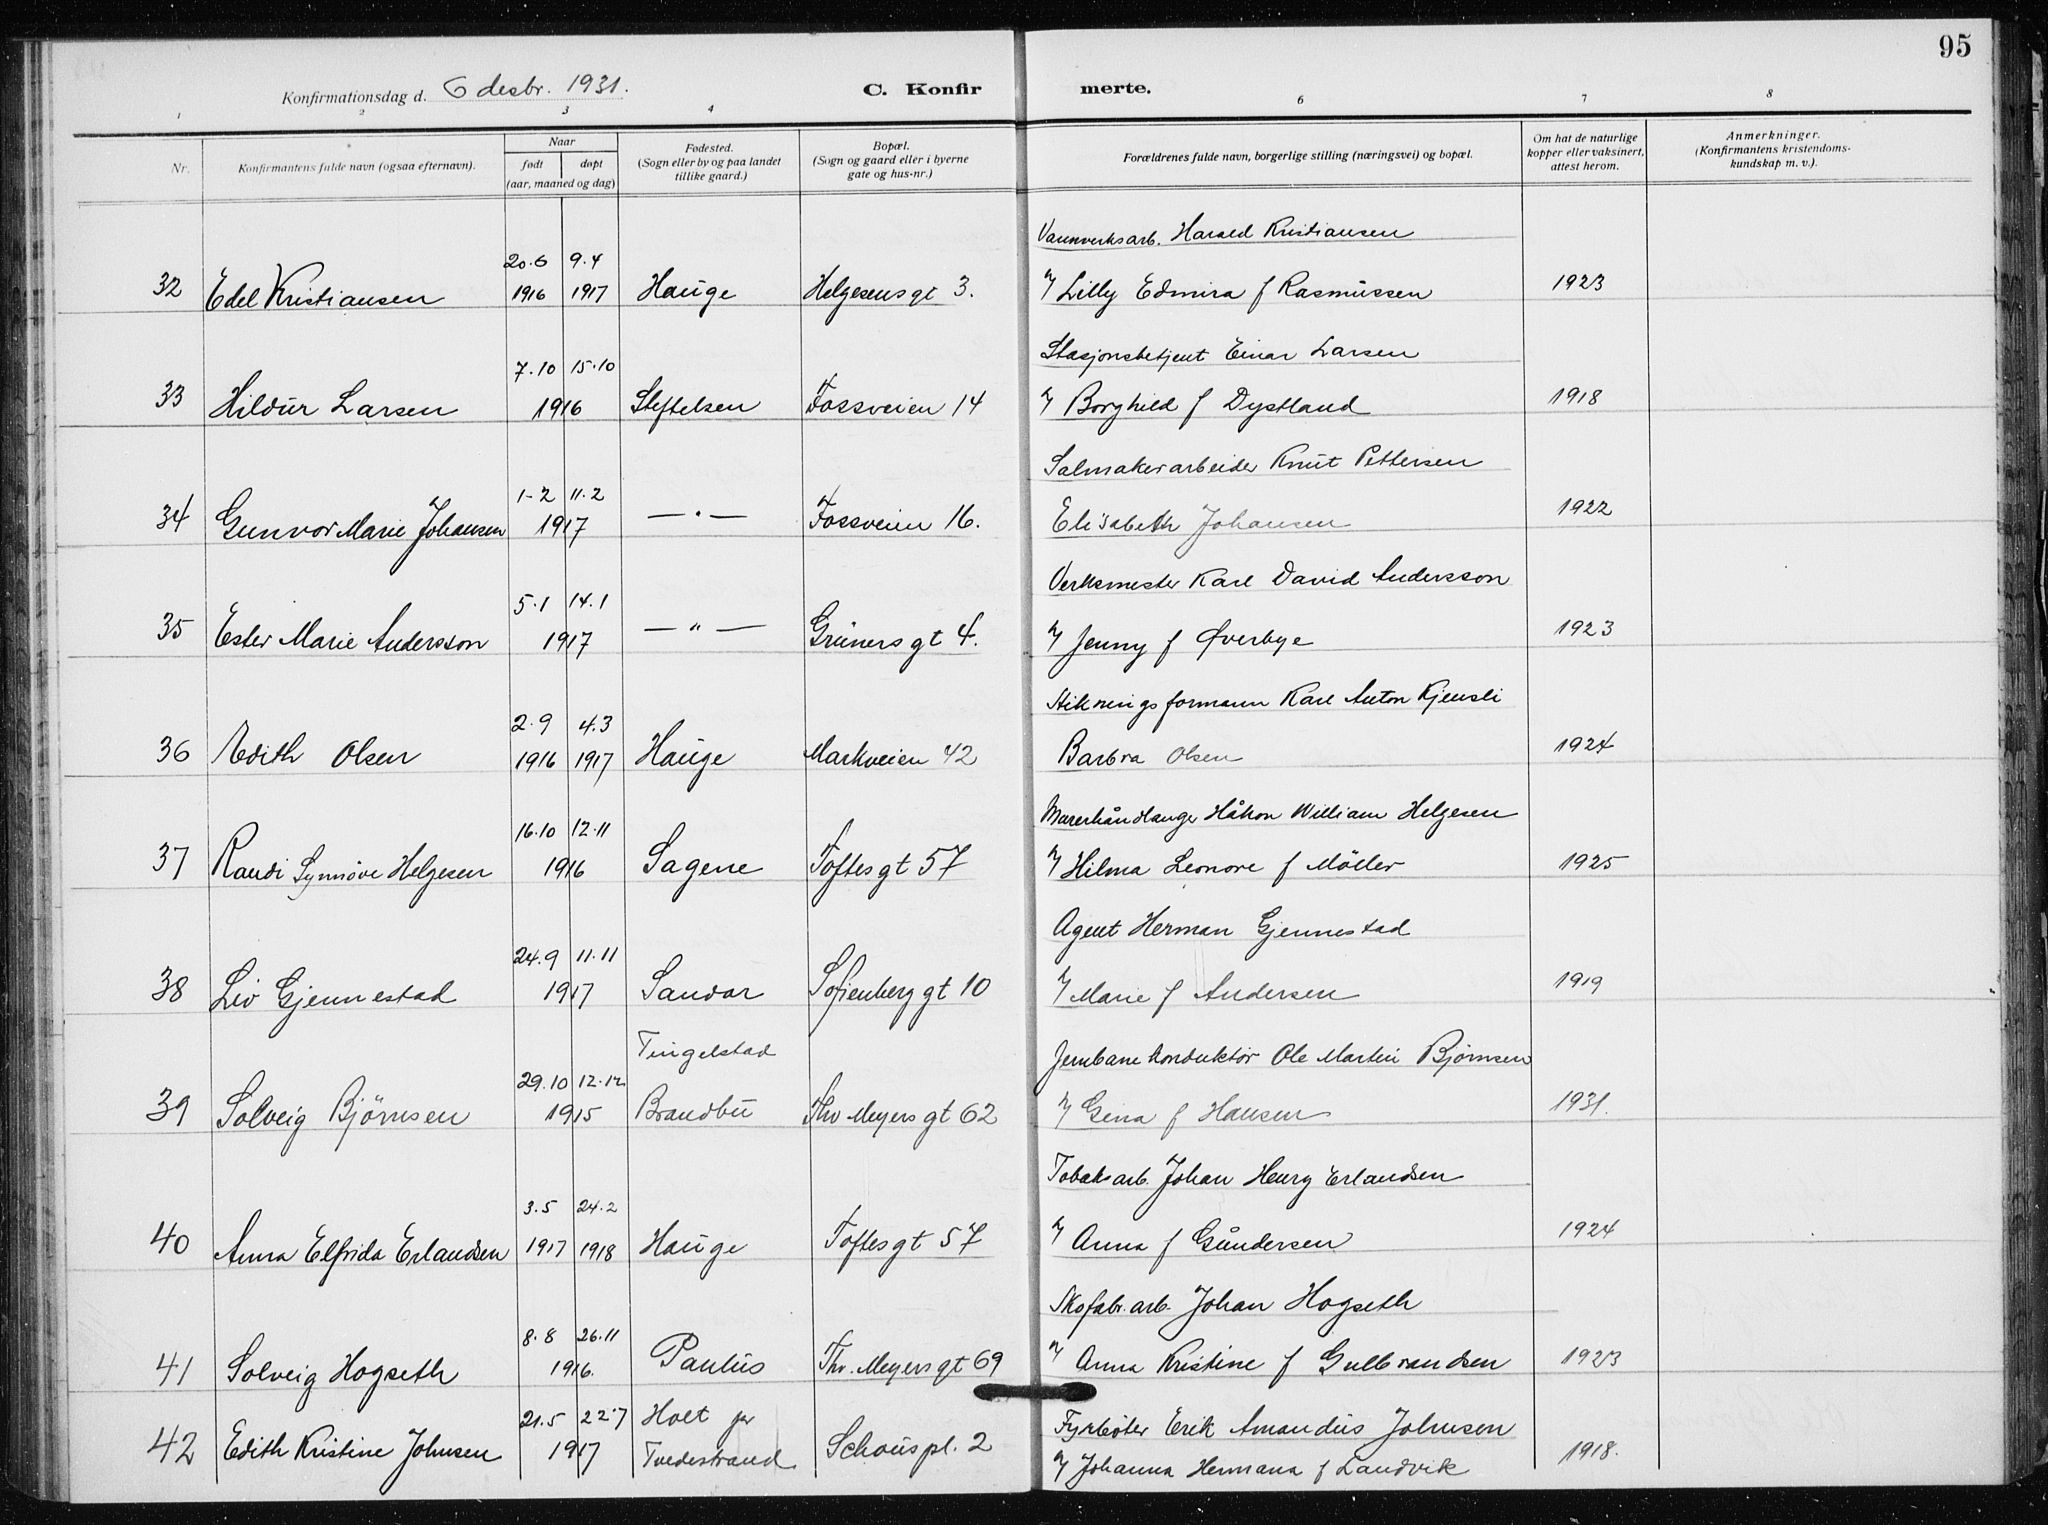 95
Konfirmationsdag d. 6 desbr. 1931.
C. Konfir merte.
1 2 3 4 6 7 8
Nr.
Konfirmantens fulde navn (ogsaa efternavn).
Naar
født døpt
(aar, maaned og dag)
Fødested.
(Sogn eller by og paa landet
tillike gaard.)
Bopæl.
(Sogn og gaard eller i byerne
gate og hus-nr.)
Forældrenes fulde navn, borgerlige stilling (næringsvei) og bopæl.
Om hat de naturlige
kopper eller vaksinert,
attest herom.
Anmerkninger.
(Konfirmantens kristendoms-
kundskap m. v.).
Vannverksarb. Harald Kristiansen
20.6 9.4
32 Edel Kristiansen 1916 1917 Hauge Helgesens gt 3. Lilly Edmira f Rasmussen 1923
Stasjonsbetjent Einar Larsen
7.10 15.10
33 Hildur Larsen 1916 Steftelsen Fossveien 14 Borghild f Dystland 1918
Salmakerarbeider Knut Pettersen
1-2 11.2
34 Gunvor Marie Johansen 1917 — . — Fossveien 16. Elisabeth Johansen 1922
Verksmester Karl David Andersson
5.1 14.1
35 Ester Marie Andersson 1917 — " — Grüners gt 4. Jenny f Øverbye 1923
Stikningsformann Karl Anton Kjensli
2.9 4.3
36 Edith Olsen 1916 1917 Hauge Markveien 42 Barbra Olsen 1924
Murerhåndlanger Håkon William Helgesen
16.10 12.11
37 Randi Synnøve Helgesen 1916 Sagene Toftes gt 57 Hilma Leonore f Möller 1925
Agent Herman Gjennestad
24.9 11.11
38 Liv Gjennestad 1917 Sandar Sofienberg gt 10 Marie f Andersen 1919
Tingelstad Jernbanekonduktör Ole Martin Bjørnsen
29.10 12.12
39 Solveig Bjørnsen 1915 Brandbu Thv Meyers gt 62 Gina f Hansen 1931.
Tobaksarb. Johan Henry Erlandsen
3.5 24.2
40 Anna Elfrida Erlandsen 1917 1918 Hauge Toftes gt 57 Anna f Gundersen 1924
Skofabr. arb. Johan Hogseth
8.8 26.11
41 Solveig Hogseth 1916. Paulus Thv. Meyers gt 69 Anna Kristine f Gulbrandsen 1923
21.5 22.7 Holt pr Fyrbøter Erik Amandus Johnsen
42 Edith Kristine Johnsen 1917 Tvedestrand Schous pl. 2 Johanna Hermana f Landvik 1918.